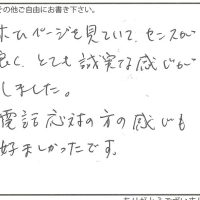 その他ご自由にお書き下さい。
ホームページを見ていて、センスが
良く、とても誠実な感じが
しました。
電話応対の方の感じも
好ましかったです。
ありがとうございまし